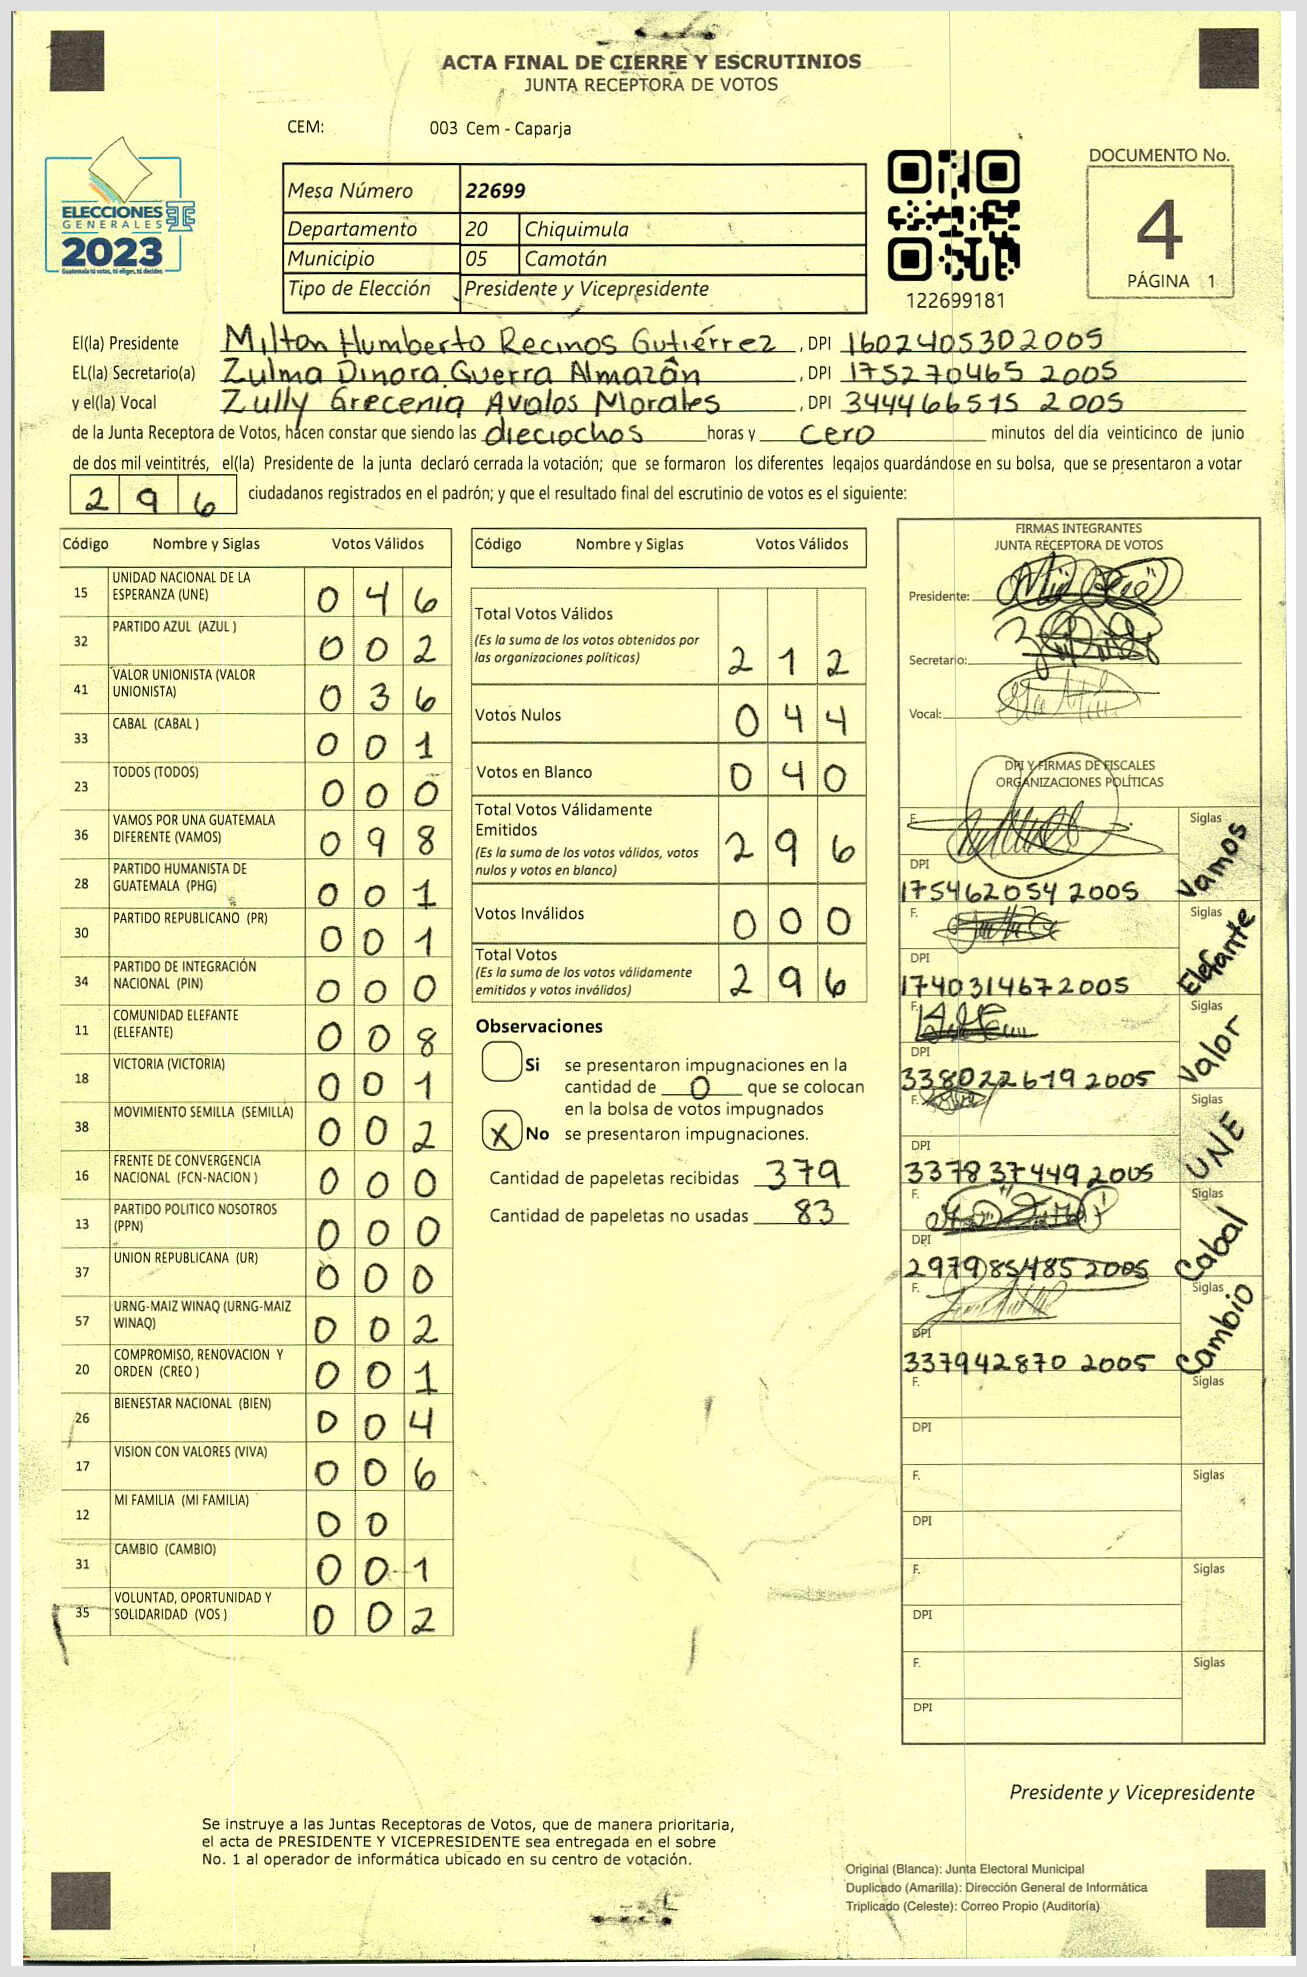 ACTA FINAL DE CIERRE Y ESCRUTINIOS
JUNTA RECEPTORA DE VOTOS
CEM: 003 Cem - Caparja
ELECCIONES
GENERALES
2023
Guatemala tú votas, tú eliges, tú decides
Mesa Número 22699
Departamento 20 Chiquimula
Municipio 05 Camotán
Tipo de Elección Presidente y Vicepresidente
122699181
DOCUMENTO No.
4
PÁGINA 1
El(la) Presidente Milton Humberto Recinos Gutiérrez , DPI 1602405302005
EL(la) Secretario(a) Zulma Dinora Guerra Almazán , DPI 175270465 2005
y el(la) Vocal Zully Grecenia Avalos Morales , DPI 344466515 2005
de la Junta Receptora de Votos, hacen constar que siendo las dieciochos horas y cero minutos del día veinticinco de junio
de dos mil veintitrés, el(la) Presidente de la junta declaró cerrada la votación; que se formaron los diferentes legajos guardándose en su bolsa, que se presentaron a votar
296 ciudadanos registrados en el padrón; y que el resultado final del escrutinio de votos es el siguiente:
Código Nombre y Siglas Votos Válidos
15 UNIDAD NACIONAL DE LA ESPERANZA (UNE) 046
32 PARTIDO AZUL (AZUL ) 002
41 VALOR UNIONISTA (VALOR UNIONISTA) 036
33 CABAL (CABAL ) 001
23 TODOS (TODOS) 000
36 VAMOS POR UNA GUATEMALA DIFERENTE (VAMOS) 098
28 PARTIDO HUMANISTA DE GUATEMALA (PHG) 001
30 PARTIDO REPUBLICANO (PR) 001
34 PARTIDO DE INTEGRACIÓN NACIONAL (PIN) 000
11 COMUNIDAD ELEFANTE (ELEFANTE) 008
18 VICTORIA (VICTORIA) 001
38 MOVIMIENTO SEMILLA (SEMILLA) 002
16 FRENTE DE CONVERGENCIA NACIONAL (FCN-NACION ) 000
13 PARTIDO POLITICO NOSOTROS (PPN) 000
37 UNION REPUBLICANA (UR) 000
57 URNG-MAIZ WINAQ (URNG-MAIZ WINAQ) 002
20 COMPROMISO, RENOVACION Y ORDEN (CREO ) 001
26 BIENESTAR NACIONAL (BIEN) 004
17 VISION CON VALORES (VIVA) 006
12 MI FAMILIA (MI FAMILIA) 00
31 CAMBIO (CAMBIO) 001
35 VOLUNTAD, OPORTUNIDAD Y SOLIDARIDAD (VOS ) 002
Código Nombre y Siglas Votos Válidos
Total Votos Válidos
(Es la suma de los votos obtenidos por
las organizaciones políticas) 212
Votos Nulos 044
Votos en Blanco 040
Total Votos Válidamente
Emitidos
(Es la suma de los votos válidos, votos
nulos y votos en blanco) 296
Votos Inválidos 000
Total Votos
(Es la suma de los votos válidamente
emitidos y votos inválidos) 296
Observaciones
Si se presentaron impugnaciones en la
cantidad de 0 que se colocan
en la bolsa de votos impugnados
X No se presentaron impugnaciones.
Cantidad de papeletas recibidas 379
Cantidad de papeletas no usadas 83
FIRMAS INTEGRANTES
JUNTA RECEPTORA DE VOTOS
Presidente:
Secretario:
Vocal:
DPI Y FIRMAS DE FISCALES
ORGANIZACIONES POLÍTICAS
F. Siglas Vamos
DPI
175462054 2005
F. Siglas Elefante
DPI
1740314672005
F. Siglas Valor
DPI
338022619 2005
F. Siglas UNE
DPI
337837449 2005
F. Siglas Cabal
DPI
297985485 2005
F. Siglas Cambio
DPI
337942870 2005
F. Siglas
DPI
F. Siglas
DPI
F. Siglas
DPI
F. Siglas
DPI
Presidente y Vicepresidente
Se instruye a las Juntas Receptoras de Votos, que de manera prioritaria,
el acta de PRESIDENTE Y VICEPRESIDENTE sea entregada en el sobre
No. 1 al operador de informática ubicado en su centro de votación.
Original (Blanca): Junta Electoral Municipal
Duplicado (Amarilla): Dirección General de Informática
Triplicado (Celeste): Correo Propio (Auditoría)